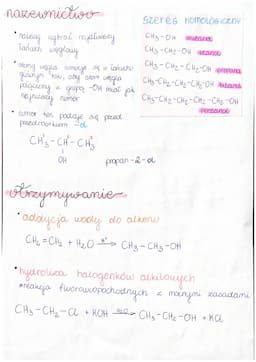 nazewnictwo
• należy wybrać najdłuższy
łańcuch węglowy
• atomy węgla numeruje się w łańcuchu
głównym tak, aby atom węgla
połączony z grupą -OH miał jak
najniższy numer
• numer ten podaje się przed
przedrostkiem -ol
CH₃¹-CH²-CH₃³
OH
propan-2-ol
szereg homologiczny
CH₃-OH metanol
CH₃-CH₂-OH etanol
CH₃-CH₂-CH₂-OH propanol
CH₃-CH₂-CH₂-CH₂-OH butanol
CH₃-CH₂-CH₂-CH₂-CH₂-OH
pentanol
otrzymywanie
• addycja wody do alkenu
CH₂=CH₂ + H₂O H⁺→ CH₃-CH₂-OH
• hydroliza halogenków alkilowych
*reakcja fluorowcopochodnych z mocnymi zasadami
CH₃-CH₂-Cl + KOH H₂O→ CH₃-CH₂-OH + KCl